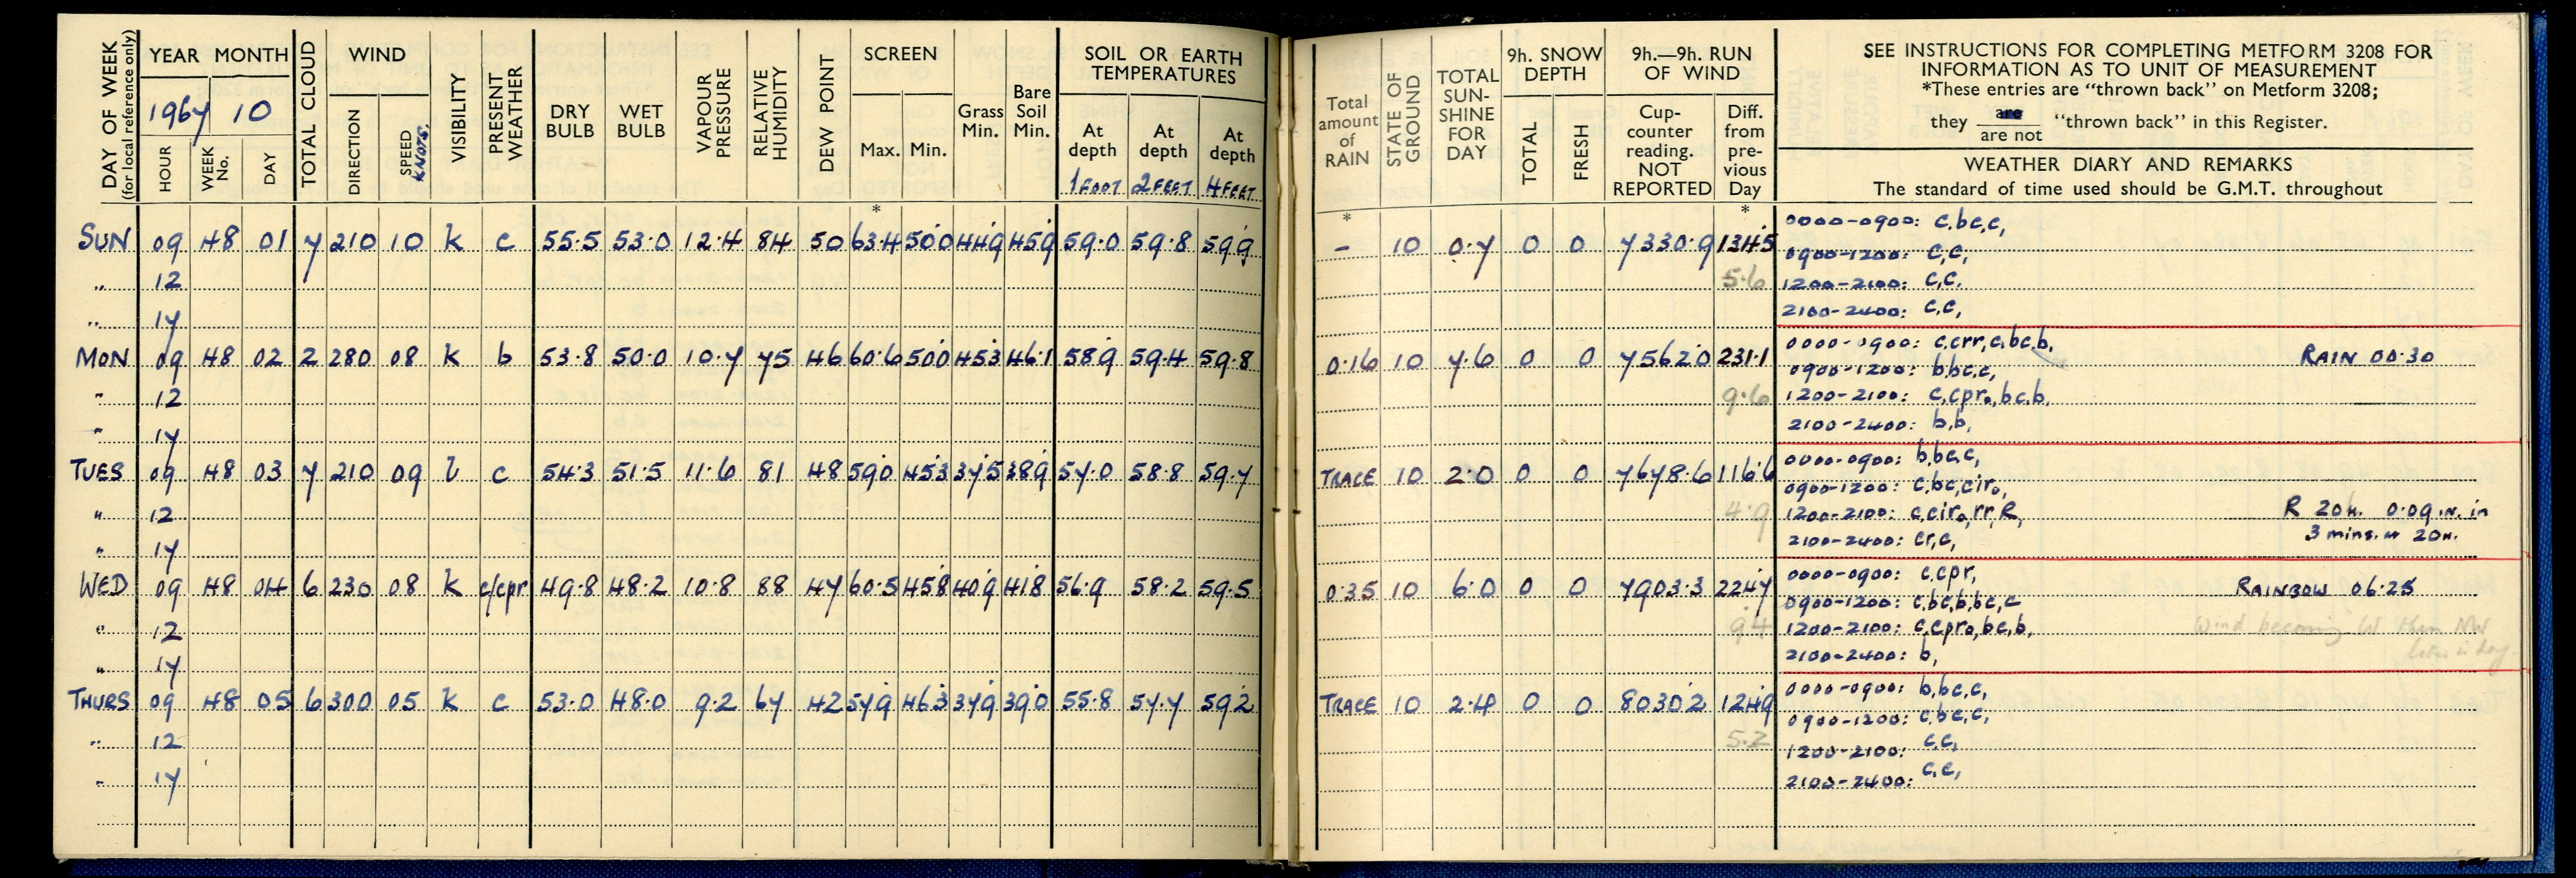 DAY OF WEEK (for local reference only) YEAR MONTH TOTAL CLOUD WIND VISIBILITY PRESENT WEATHER DRY BULB WET BULB VAPOUR PRESSURE RELATIVE HUMIDITY DEW POINT SCREEN Grass Min. Bare Soil Min. SOIL OR EARTH TEMPERATURES
1967 10
HOUR WEEK No. DAY DIRECTION SPEED KNOTS. Max. Min. At depth At depth At depth
1 FOOT 2 FEET 4 FEET
Total amount of RAIN STATE OF GROUND TOTAL SUN-SHINE FOR DAY 9h. SNOW DEPTH 9h.—9h. RUN OF WIND
TOTAL FRESH Cup-counter reading. NOT REPORTED Diff. from pre-vious Day
SEE INSTRUCTIONS FOR COMPLETING METFORM 3208 FOR
INFORMATION AS TO UNIT OF MEASUREMENT
*These entries are "thrown back" on Metform 3208;
they are / are not "thrown back" in this Register.
WEATHER DIARY AND REMARKS
The standard of time used should be G.M.T. throughout
* * *
SUN 09 48 01 7 210 10 k c 55.5 53.0 12.4 84 50 63.4 50.0 44.9 45.9 59.0 59.8 59.9 – 10 0.7 0 0 7330.9 134.5 0000-0900: c,bc,c,
0900-1200: c,c,
" 12 5.6 1200-2100: c,c.
" 17 2100-2400: c,c,
MON 09 48 02 2 280 08 k b 53.8 50.0 10.7 75 46 60.6 50.0 45.3 46.1 58.9 59.4 59.8 0.16 10 7.6 0 0 7562.0 231.1 0000-0900: c,crr,c,bc,b, RAIN 00.30
0900-1200: b,bc,c,
" 12 9.6 1200-2100: c,cpr₀,bc,b,
" 17 2100-2400: b,b,
TUES 09 48 03 7 210 09 l c 54.3 51.5 11.6 81 48 59.0 45.3 37.5 38.9 57.0 58.8 59.7 TRACE 10 2.0 0 0 7678.6 116.6 0000-0900: b,bc,c,
0900-1200: c,bc,cir₀,
" 12 4.9 1200-2100: c,cir₀,rr,R, R 20h. 0.09 IN. in
" 17 2100-2400: cr,c, 3 mins. at 20H.
WED 09 48 04 6 230 08 k c/cpr 49.8 48.2 10.8 88 47 60.5 45.8 40.9 41.8 56.9 58.2 59.5 0.35 10 6.0 0 0 7903.3 224.7 0000-0900: c,cpr, RAINBOW 06.25
0900-1200: c,bc,b,bc,c
" 12 9.4 1200-2100: c,cpr₀,bc,b, Wind becoming W then NW
" 17 2100-2400: b, later in day.
THURS 09 48 05 6 300 05 k c 53.0 48.0 9.2 67 42 57.9 46.3 37.9 39.0 55.8 57.7 59.2 TRACE 10 2.4 0 0 8030.2 124.9 0000-0900: b,bc,c,
0900-1200: c,bc,c,
" 12 5.2 1200-2100: c,c,
" 17 2100-2400: c,c,